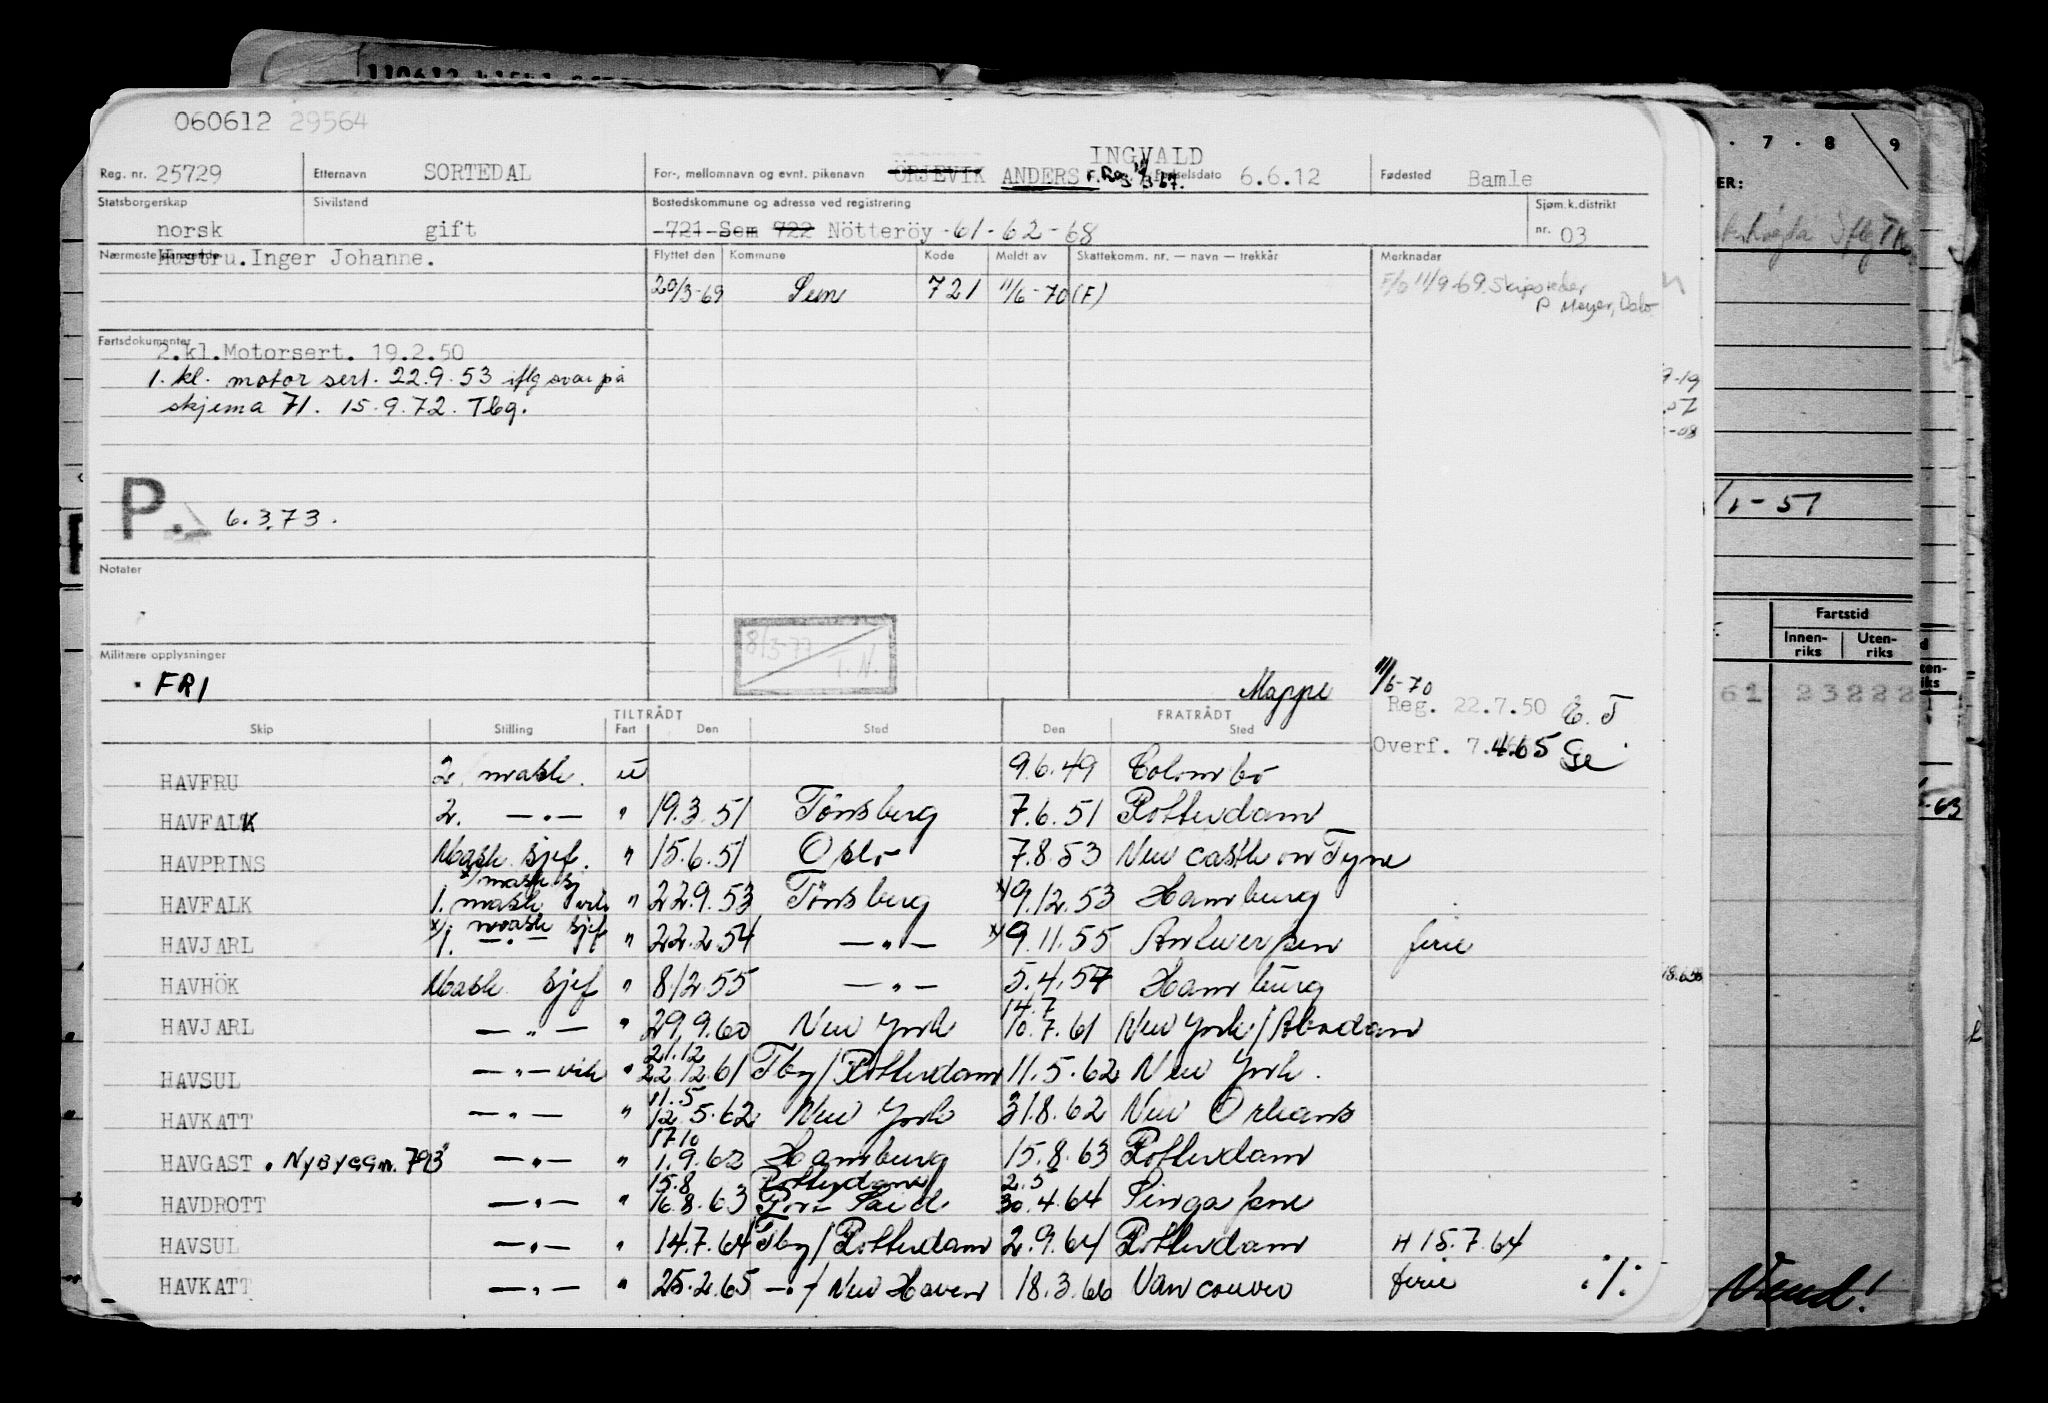 060612 29564
INGVALD
Reg. nr. 25729 Etternavn SORTEDAL For-, mellomnavn og evnt. pikenavn ÖRJEVIK ANDERS Fødselsdato 6.6.12 Fødested Bamle
Statsborgerskap Sivilstand Bostedskommune og adresse ved registrering Sjøm.k.distrikt
norsk gift -721-Sem 722 Nötteröy -61-62-68 nr. 03
Nærmeste pårørende Hustru.Inger Johanne. Flyttet den Kommune Kode Meldt av Skattekomm. nr. — navn — trekkår Merknader
20/3-69 Sem 721 11/6-70 (F) F/o 11/9-69. Skipsreder
P. Meyer, Oslo
Fartsdokumenter
2.kl.Motorsert. 19.2.50
1. kl. motor sert. 22.9.53 iflg svar på
skjema 71. 15.9.72. Tbg.
P. 6.3.73.
Notater
8/3-77
T.N.
Militære opplysninger
FRI
Mappe 11/6-70
Reg. 22.7.50 E.T
Overf. 7.4.65 Se
TILTRÅDT FRATRÅDT
Skip Stilling Fart Den Sted Den Sted
HAVFRU 2. mask. u 9.6.49 Colombo
HAVFALK 2. —"— " 19.3.51 Tönsberg 7.6.51 Rotterdam
HAVPRINS Mask. sjef. " 15.6.51 Oslo 7.8.53 New castle on Tyne
x/ mask. sj
HAVFALK 1. mask vik " 22.9.53 Tönsberg x/ 9.12.53 Hamburg
x/ mask sjef
HAVJARL 1. —"— " 22.2.54 —"— x/ 9.11.55 Antwerpen ferie
HAVHÖK Mask sjef " 8/2.55 —"— 5.4.57 Hamburg
14.7
HAVJARL —"— " 29.9.60 New York 10.7.61 New York/Abadan
21.12
HAVSUL —"— vik " 22.12.61 Tbg/Rotterdam 11.5.62 New York.
11.5
HAVKATT —"— " 12.5.62 New York 31.8.62 New Orleans
17.10
HAVGAST . Nybyggn. 793 —"— " 1.9.62 Hamburg 15.8.63 Rotterdam
15.8 Rotterdam 2.5
HAVDROTT —"— " 16.8.63 Port Said 30.4.64 Singapore
HAVSUL —"— " 14.7.64 Tbg/Rotterdam 2.9.64 Rotterdam H 15.7.64
HAVKATT —"— " 25.2.65 —"—/ New Haven 18.3.66 Vancouver ferie ./.
7 . 8 9
ER:
/1-51
Fartstid
Innen-riks Uten-riks
61 23222
-63
Vend!